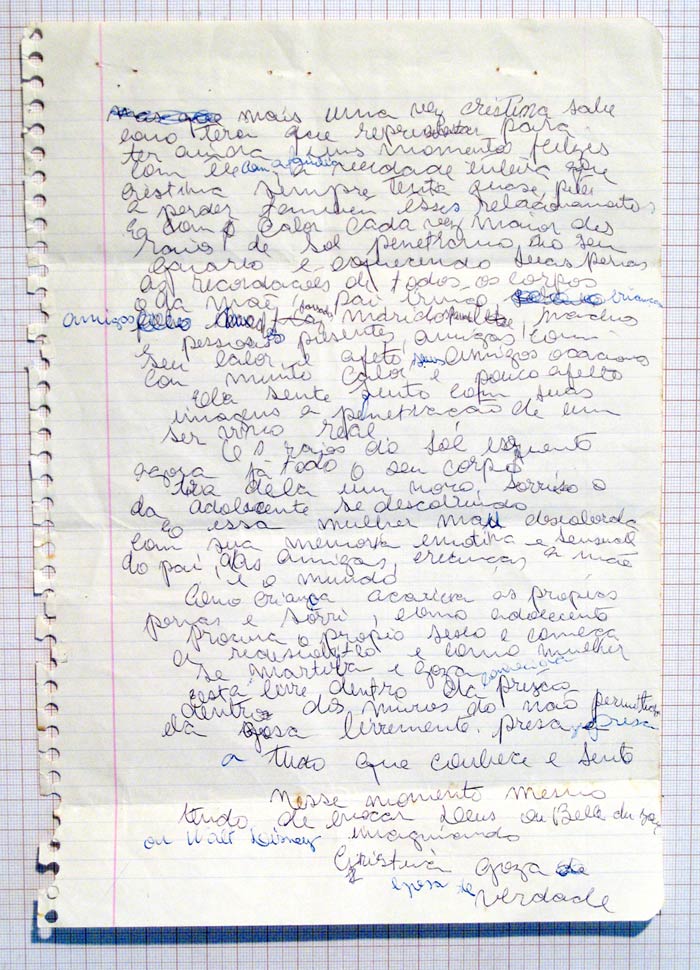 mais uma vez cristina sabe
como tera que representar para
ter ainda seus momentos felizes
com ele com alguem a verdade inteira que
cristina sempre tenta quase, 
a perder tambem esses relacionamentos
E com o calor cada vez maior dos
raios de sol penetrando no seu
e esquecendo suas pernas
as recordações de todos os corpos
o da mãe, pai irmão, criança
amigos marido, machos
pessoas presentes, amigas, com
seu calor e afeto, seus amigos ocasionais
con muito calor e pouco afeto
Ela sente junto com suas
imagens a penetração de um
ser vivo real
E os raios do sol esquento
agora já todo o seu corpo
tira dela um novo sorriso o
da adolescente se descobrindo
E essa mulher mau descoberta
com sua memoria emotiva e sensual
do pai, das amigas, crianças a mãe
e o mundo
Como criança acaricia as propias
pernas e sorri, como adolecente
procura o propio sexo e começa
a e como mulher
se e goza
esta livre dentro da prisão
dentro dos muros do não permitido
ela gosa livremente. presa presa
a tudo que conhece e sente
Nesse momento mesmo
tendo de evocar Deus ou Bela du
ou Walt Disney imaginando
Cristina goza
gosa de verdade